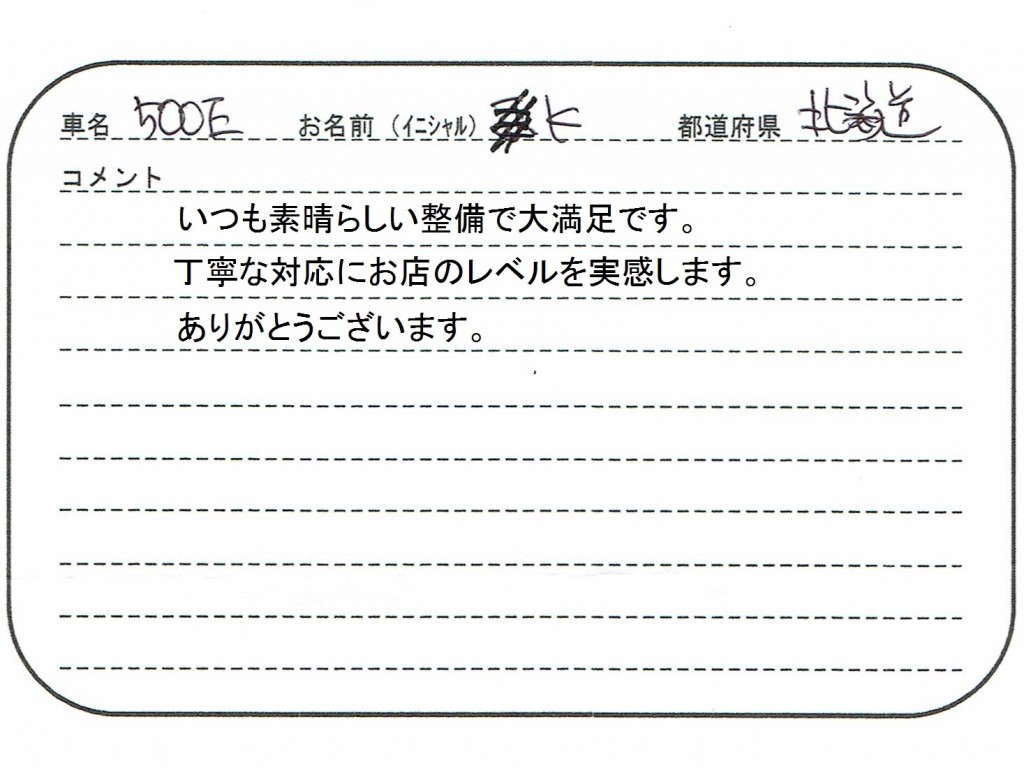 車名 500E お名前（ｲﾆｼｬﾙ） 都道府県 北海道
コメント
いつも素晴らしい整備で大満足です。
丁寧な対応にお店のレベルを実感します。
ありがとうございます。